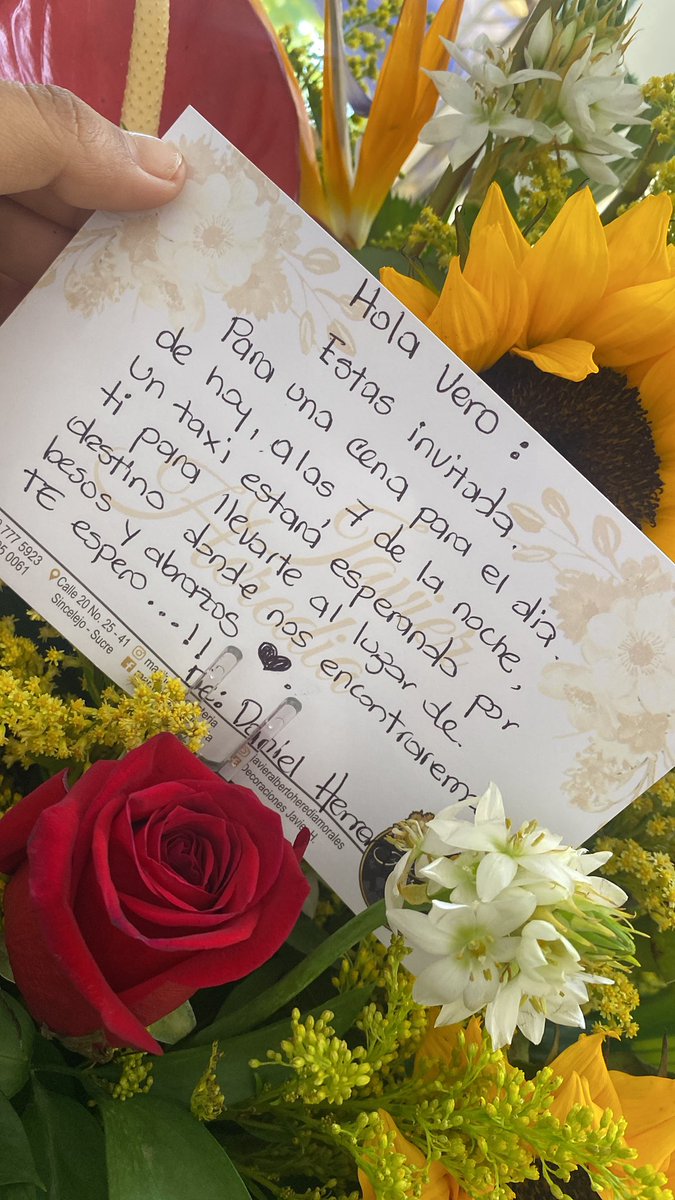 Hola Vero:
Estas invitada.
Para una cena para el dia
de hoy, a las 7 de la noche,
un taxi estará esperando por
ti para llevarte al lugar de
destino donde nos encontrarem
besos y abrazos
TE espero...!!
Daniel Herre
Javier Heredia
777 5923
5 0061
Calle 20 No. 25 - 41
Sincelejo - Sucre
javieralbertoherediamorales
Decoraciones Javier H.